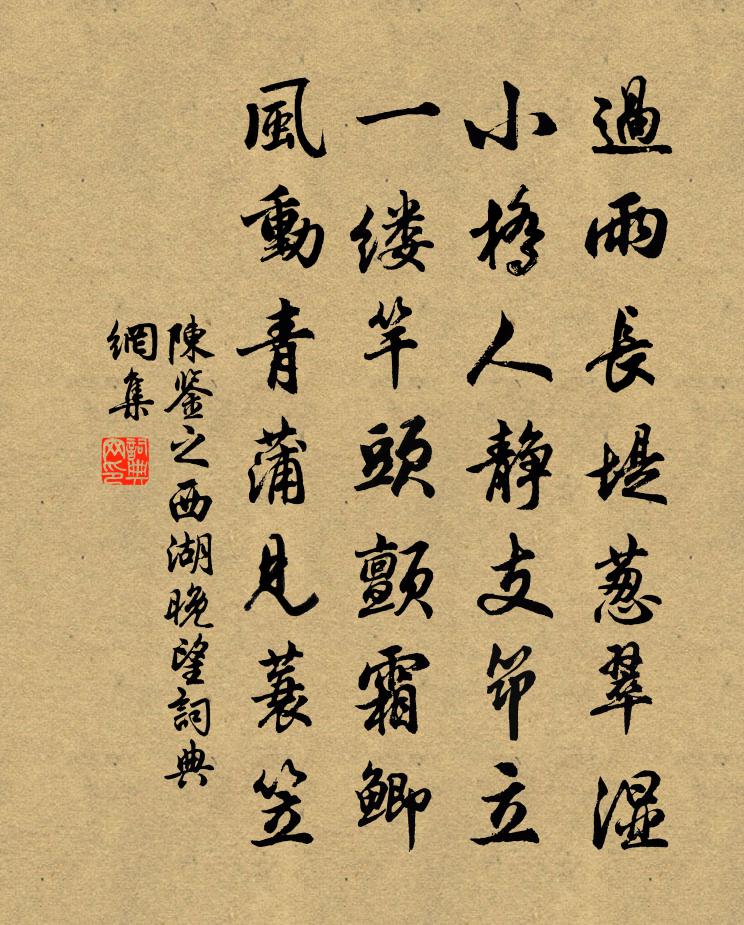 過雨長堤葱翠濕
小橋人静支笻立
一缕竿頭顫霜鲫
風動青蒲見蓑笠
陳鉴之西湖晚望詞典
網集
詞典
网印